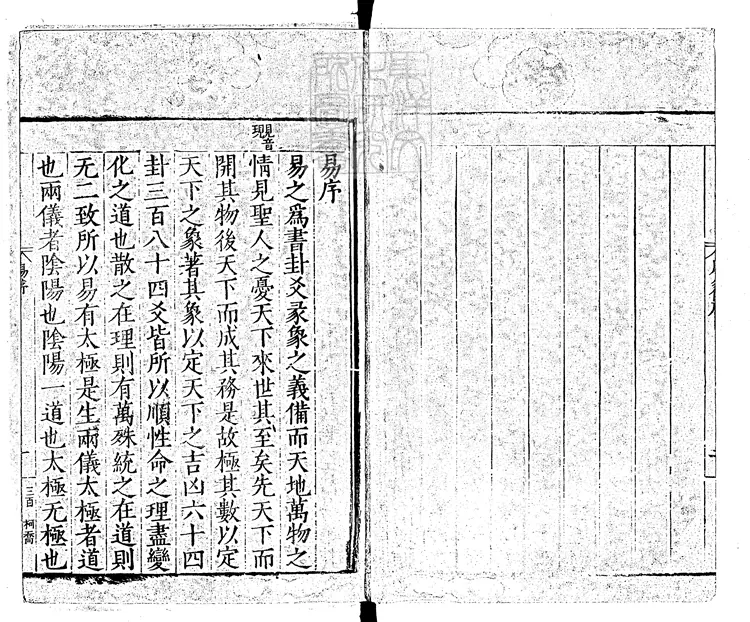 易序
易之爲書卦爻彖象之義備而天地萬物之
情見聖人之憂天下來世其至矣先天下而
見音
現
開其物後天下而成其務是故極其數以定
天下之象著其象以定天下之吉凶六十四
卦三百八十四爻皆所以順性命之理盡變
化之道也散之在理則有萬殊統之在道則
无二致所以易有太極是生兩儀太極者道
也兩儀者陰陽也陰陽一道也太極无極也
易序
一
三百